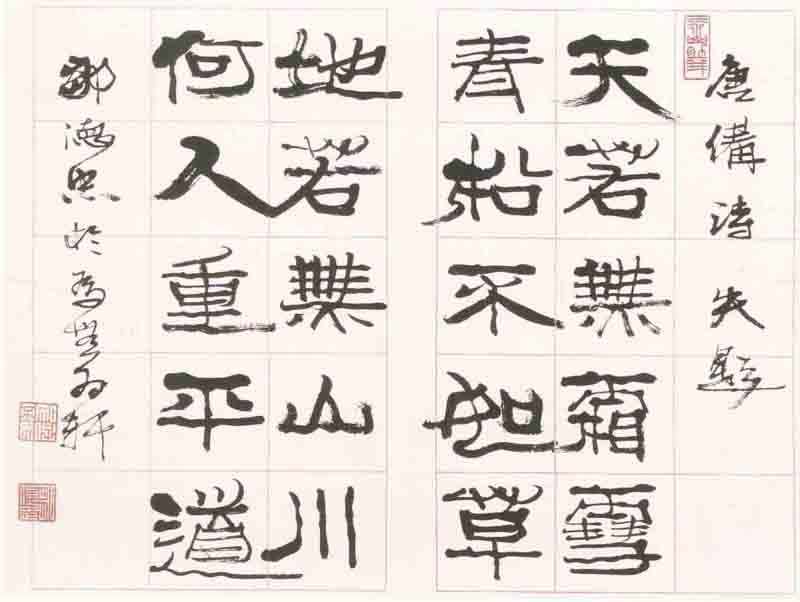 唐備詩 失題
天若無霜雪
青松不如草
地若無山川
何人重平道
鄒德忠於為無為軒